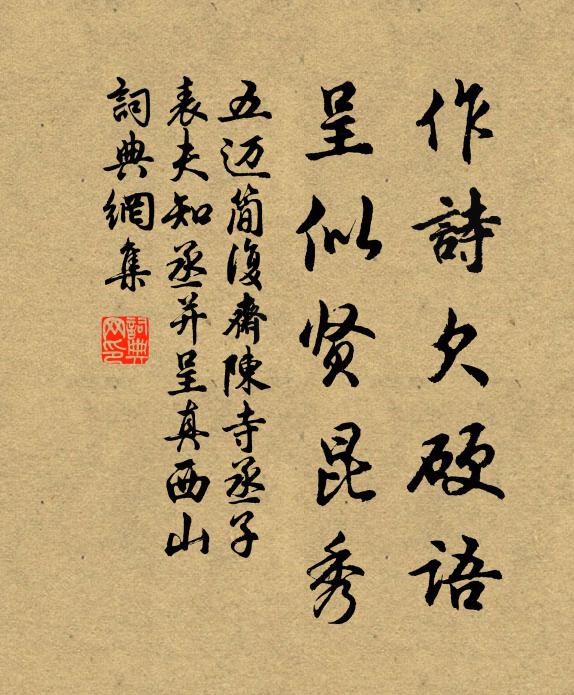 作詩欠硬語
呈似贤昆秀
五迈简復齋陳寺丞子
表夫知丞并呈真西山
詞典網集
詞典网印